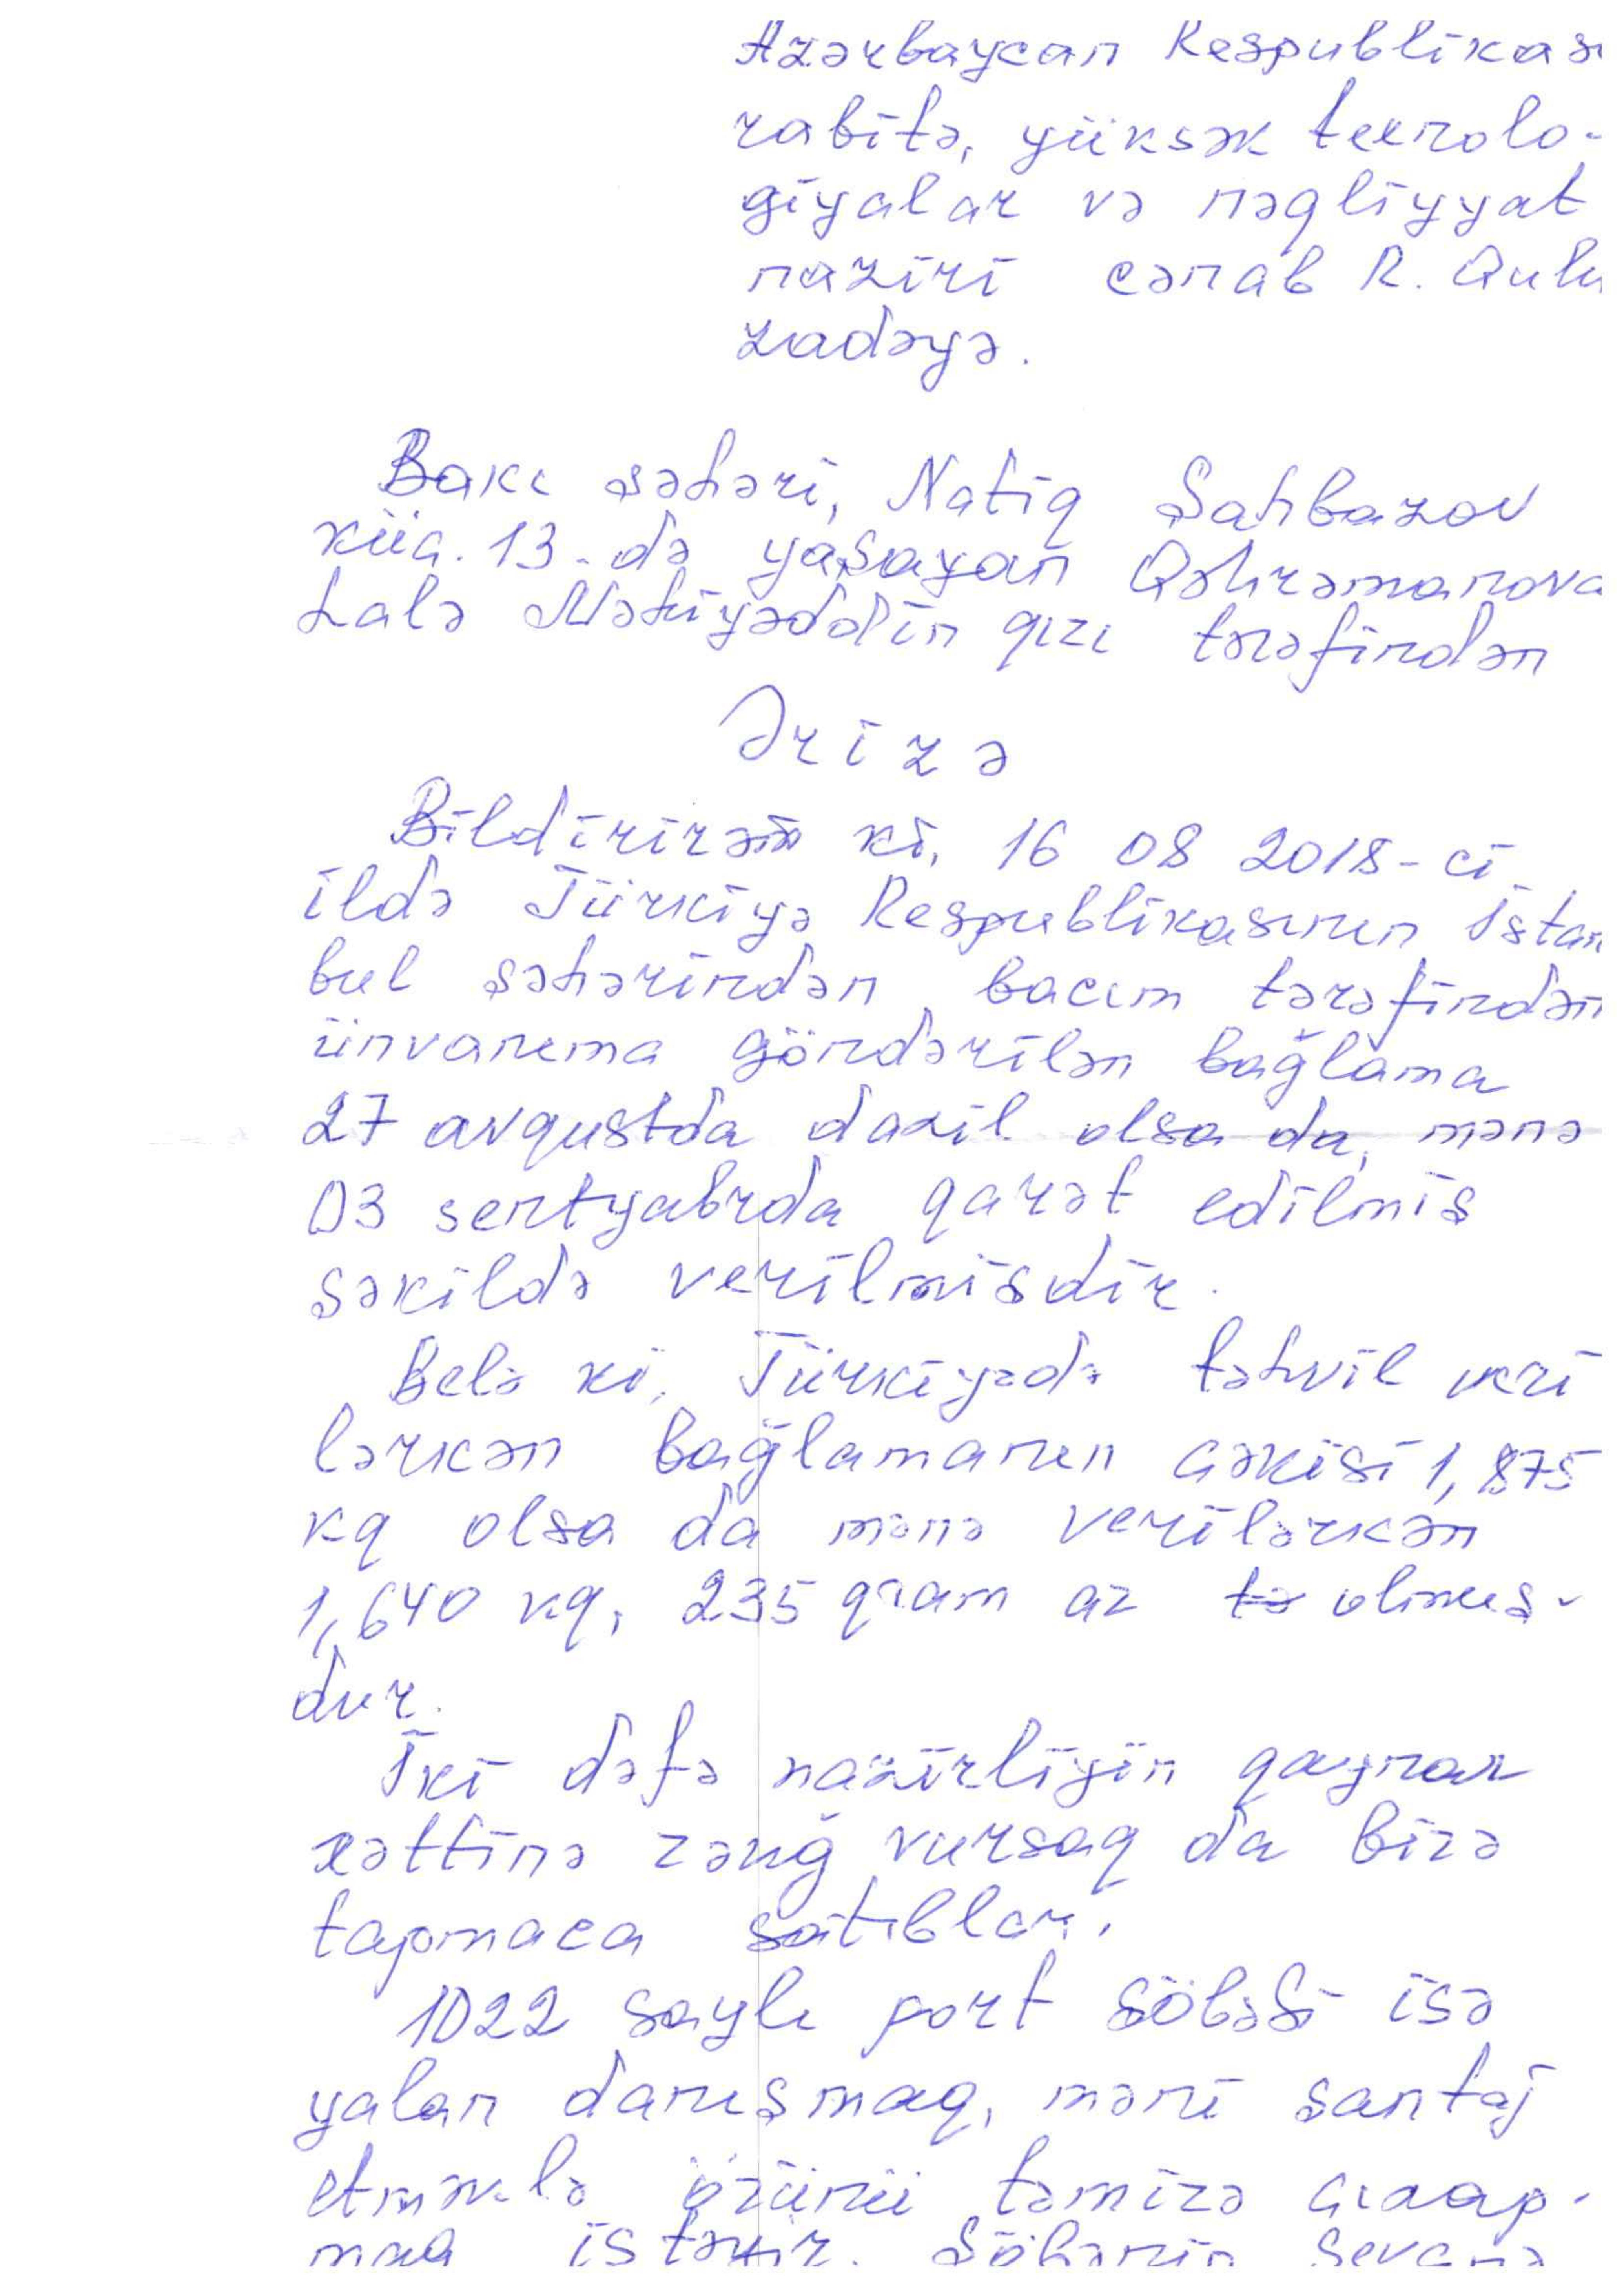 Azərbaycan Respublikası
rabitə, yüksək texnolo-
giyalar və nəqliyyat
naziri cənab R. Qulu
zadəyə.
Bakı şəhəri, Natiq Şahbazov
küç. 13-də yaşayan Qəhrəmanova
Lalə Məhiyəddin qızı tərəfindən
Ərizə
Bildirirəm ki, 16 08 2018-ci
ildə Türkiyə Respublikasının İstan
bul şəhərindən bacım tərəfindən
ünvanıma göndərilən bağlama
27 avqustda daxil olsa da, mənə
03 sentyabrda qarət edilmiş
şəkildə verilmişdir.
Belə ki, Türkiyədə təhvil veri
lərkən bağlamanın çəkisi 1,875
kq olsa da mənə verilərkən
1,640 kq, 235 qram az olmuş-
dur.
İki dəfə nazirliyin qaynar
xəttinə zəng vursaq da bizə
tapmaca satıblar.
1022 saylı poçt şöbəsi isə
yalan danışmaq, məni şantaj
etməklə özünü təmizə
maq istəyir. Şöbənin